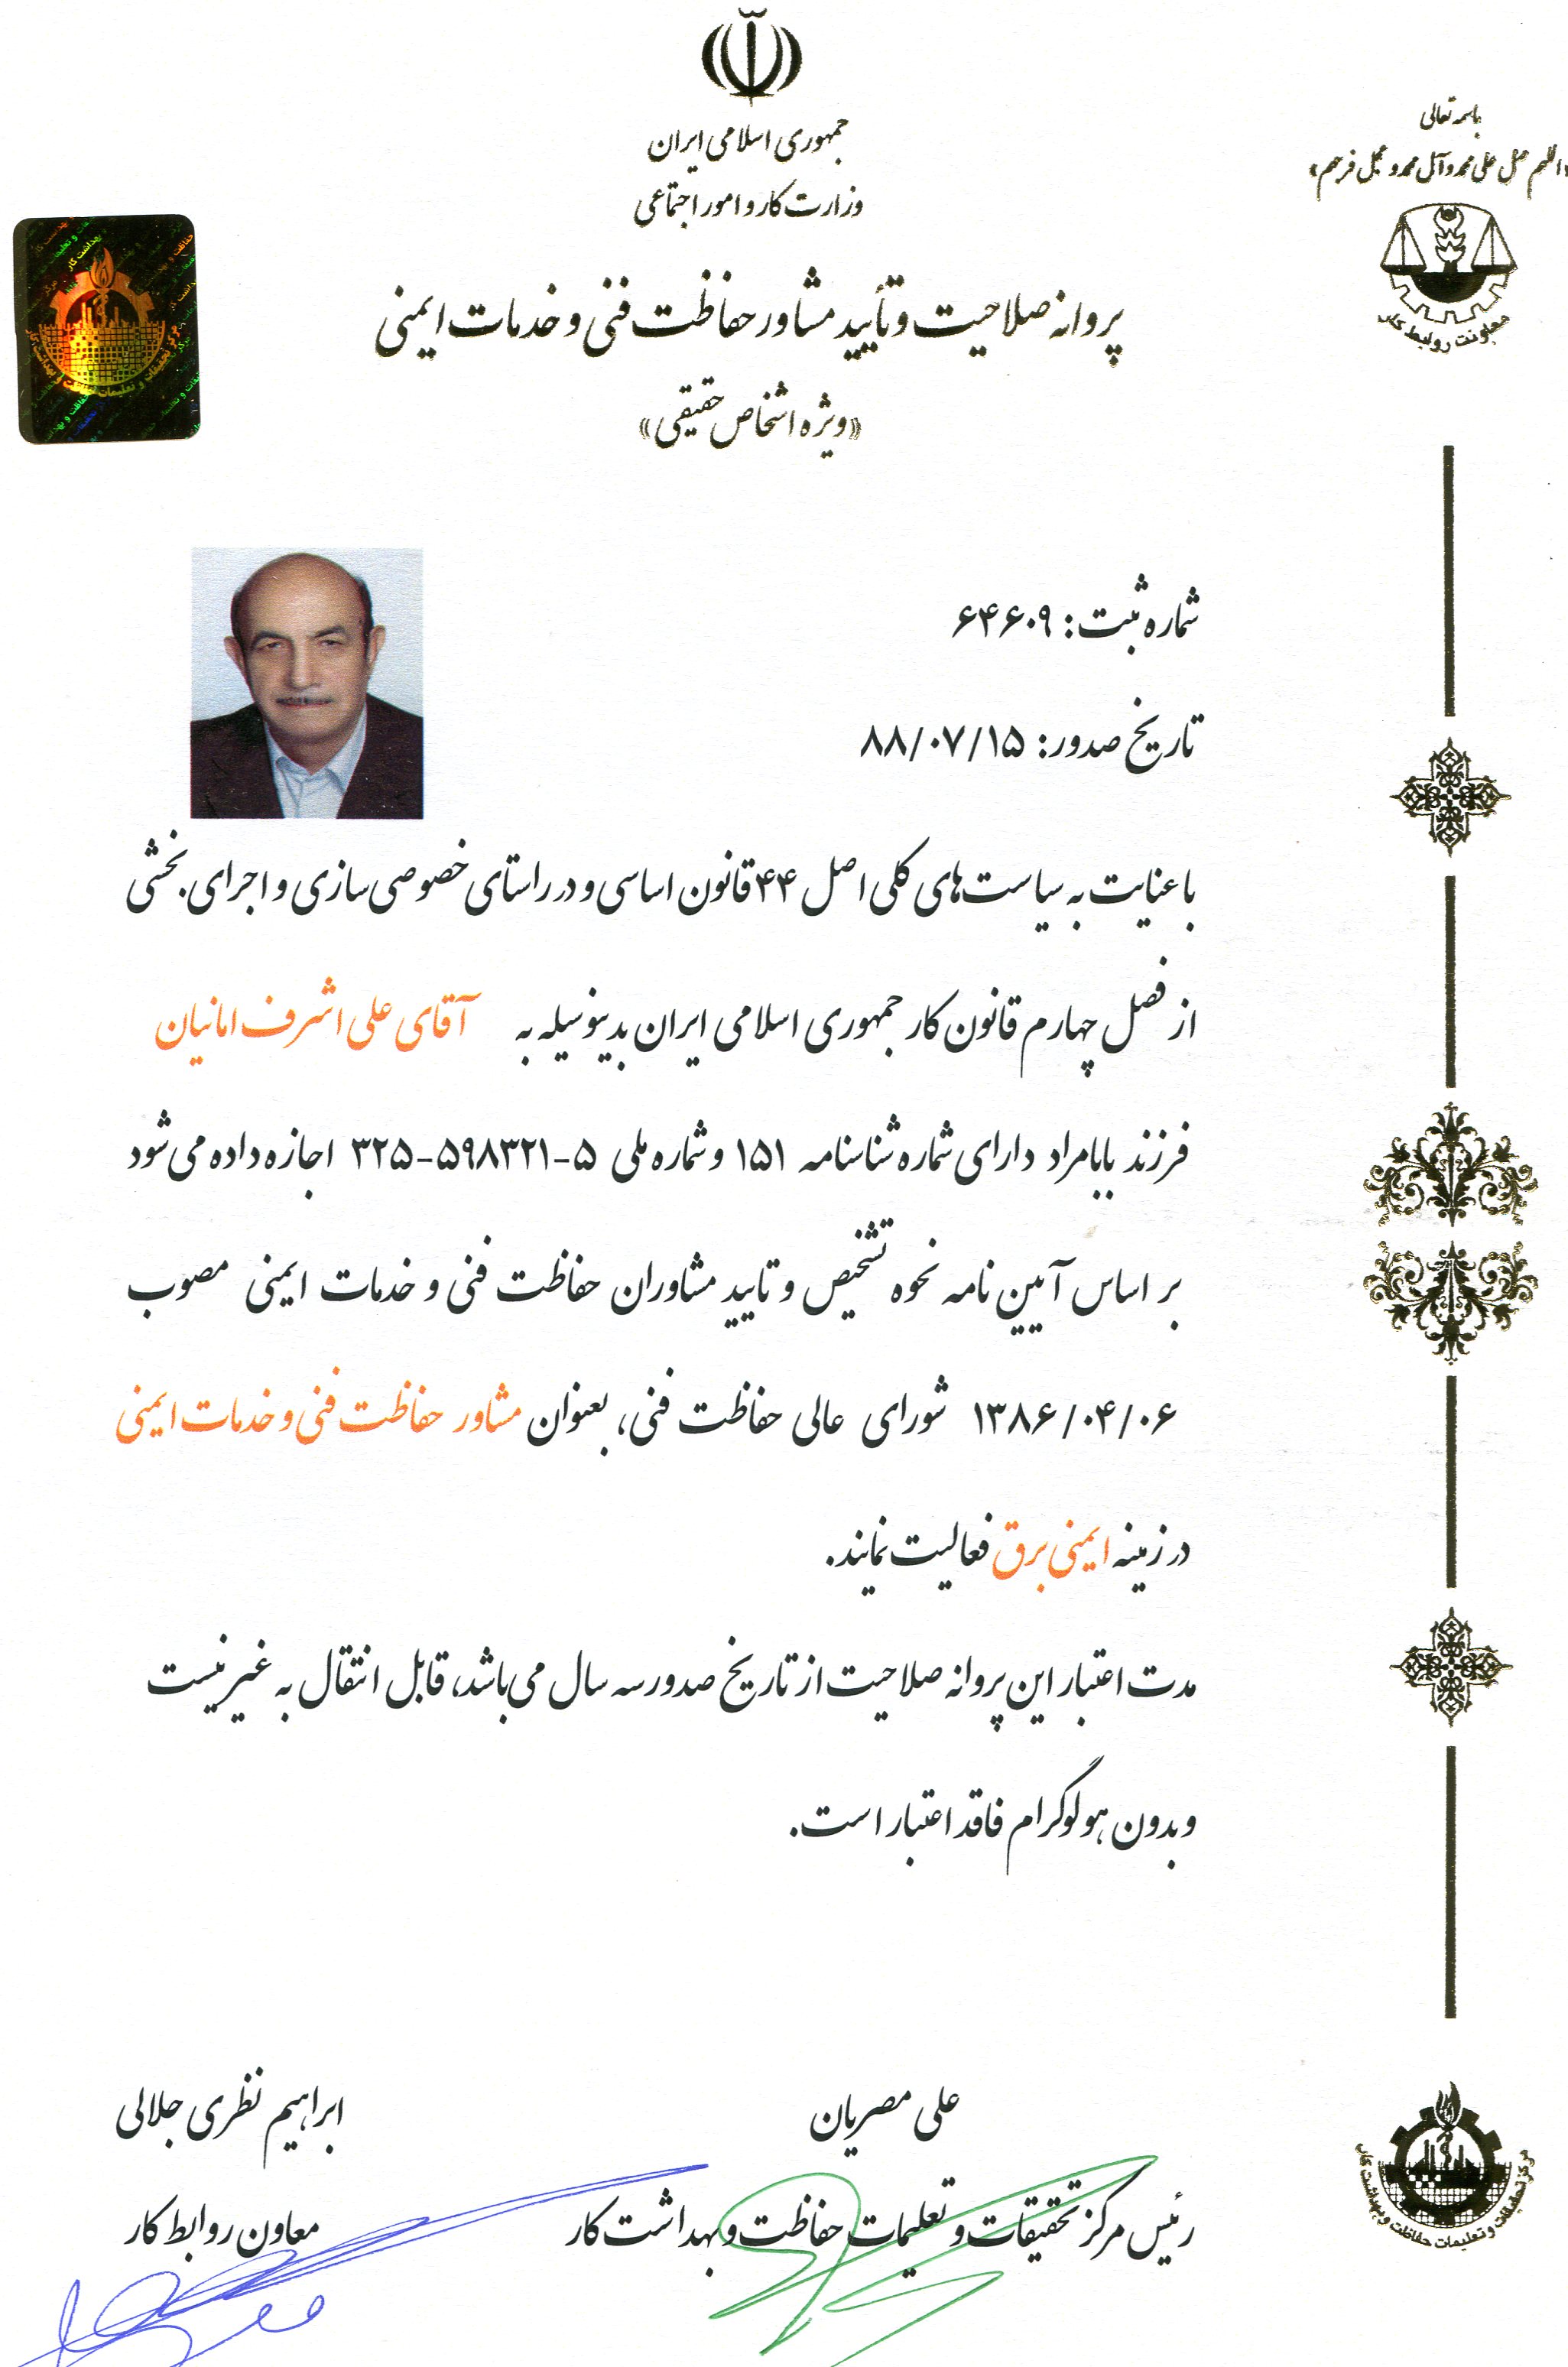 باسمه تعالی
«اللهم صل علی محمد و آل محمد و عجل فرجهم»
معاونت روابط کار
جمهوری اسلامی ایران
وزارت کار و امور اجتماعی
پروانه صلاحیت و تأیید مشاور حفاظت فنی و خدمات ایمنی
«ویژه اشخاص حقیقی»
شماره ثبت: ۶۴۶۰۹
تاریخ صدور: ۸۸/۰۷/۱۵
با عنایت به سیاست‌های کلی اصل ۴۴ قانون اساسی و در راستای خصوصی سازی و اجرای بخشی
از فصل چهارم قانون کار جمهوری اسلامی ایران بدینوسیله به آقای علی اشرف امانیان
فرزند بابامراد دارای شماره شناسنامه ۱۵۱ و شماره ملی ۵-۵۹۸۳۲۱-۳۲۵ اجازه داده می شود
بر اساس آیین نامه نحوه تشخیص و تایید مشاوران حفاظت فنی و خدمات ایمنی مصوب
۱۳۸۶/۰۴/۰۶ شورای عالی حفاظت فنی، بعنوان مشاور حفاظت فنی و خدمات ایمنی
در زمینه ایمنی برق فعالیت نمایند.
مدت اعتبار این پروانه صلاحیت از تاریخ صدور سه سال می باشد، قابل انتقال به غیر نیست
و بدون هولوگرام فاقد اعتبار است.
علی مصریان
رئیس مرکز تحقیقات و تعلیمات حفاظت و بهداشت کار
ابراهیم نظری جلالی
معاون روابط کار
مرکز تحقیقات و تعلیمات حفاظت و بهداشت کار